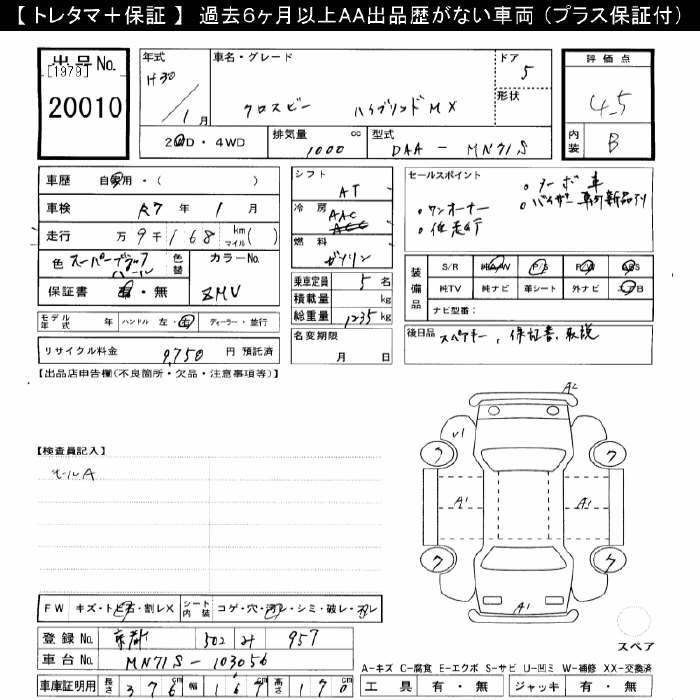 【 トレタマ＋保証 】 過去6ヶ月以上AA出品歴がない車両（プラス保証付）
出品No.
[1979]
20010
年式
H30
1月
車名・グレード
クロスビー ハイブリッドMX
ドア
5
形状
2WD・4WD
排気量 1000 cc
型式 DAA-MN71S
評価点
4.5
内装
B
車歴 自家用・( )
車検 R7年 1月
走行 万9千168 km マイル( )
色 スーパーブラックパール
色替
カラーNo.
ZMV
保証書 有・無
モデル年式 年 ハンドル 左・右 ディーラー・並行
リサイクル料金 9,750 円 預託済
シフト
AT
冷房
AAC
燃料
ガソリン
乗車定員 5 名
積載量 kg
総重量 1235 kg
名変期限
月 日
セールスポイント
○ワンオーナー
○低走行
○ターボ車
装備品
S/R 純AAW P/S P/W ABS
純TV 純ナビ 革シート 外ナビ エアB
ナビ型番：
後日品 スペアキー、保証書、取説
【出品店申告欄(不良箇所・欠品・注意事項等)】
【検査員記入】
モールA
FW キズ・トビ石・割レX シート内装 コゲ・穴・汚レ・シミ・破レ・スレ
登録No. 京都 502 み 957
車台No. MN71S-103056
車庫証明用 長さ 376cm 幅 167cm 高さ 170cm
A2
U1
ワ
ワ
A1
A1
ワ
ワ
A1
スペア
A-キズ C-腐食 E-エクボ S-サビ U-凹ミ W-補修 XX-交換済
工具 有・無 ジャッキ 有・無